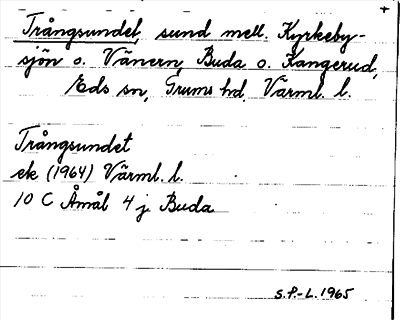 Trångsundet, sund mell. Kyrkeby-
sjön o. Vänern, Buda o. Kangerud,
Eds sn, Grums hd, Värml. l.
Trångsundet
ek (1964) Värml. l.
10 C Åmål 4 j Buda
S.P.-L. 1965